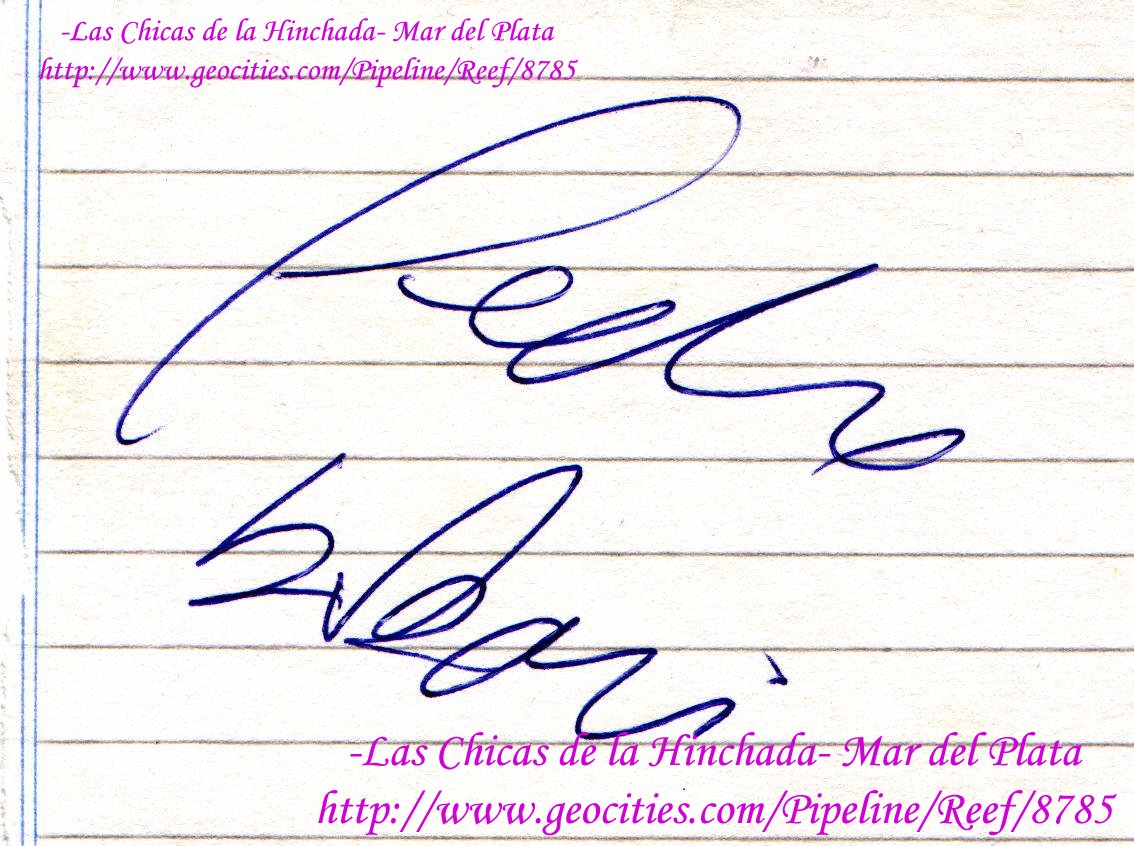 -Las Chicas de la Hinchada- Mar del Plata
http://www.geocities.com/Pipeline/Reef/8785
Pedro
-Las Chicas de la Hinchada- Mar del Plata
http://www.geocities.com/Pipeline/Reef/8785